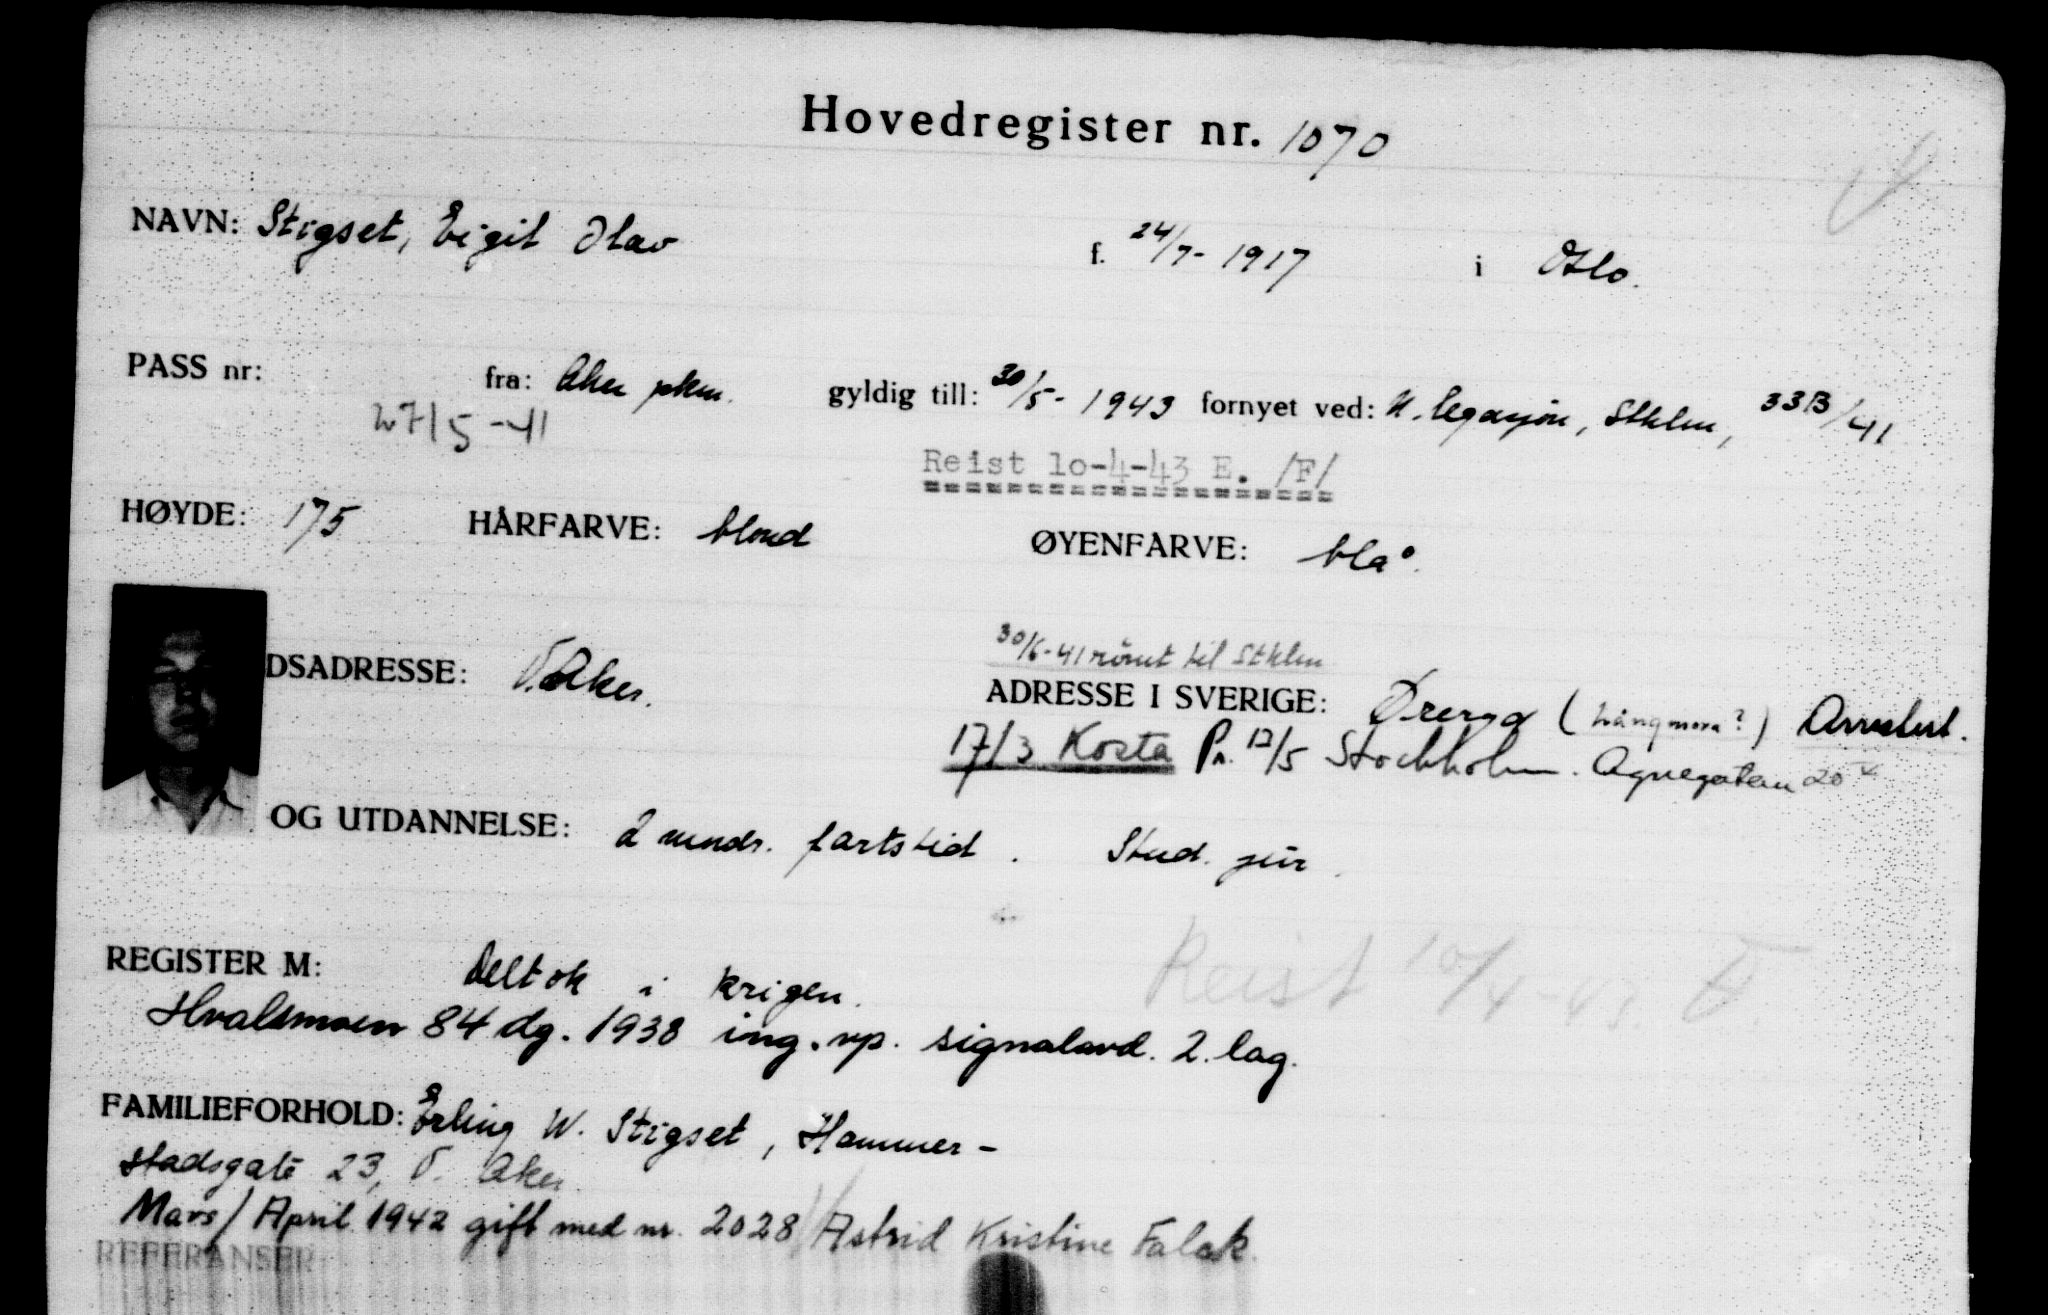 Hovedregister nr. 1070
NAVN: Stigset, Eigil Olav f. 24/7-1917 i Oslo.
PASS nr: fra: Aker pkm. gyldig till: 30/5-1943 fornyet ved: N. legasjon, Sthlm, 33B/41
27/5-41
Reist 10-4-43 E. /F/
HØYDE: 175 HÅRFARVE: blond ØYENFARVE: blå.
30/6-41 rømt til Sthlm
DSADRESSE: V. Aker. ADRESSE I SVERIGE: Øreryd (Långmora?) Arvelund.
17/3 Kosta Pr. 12/5 Stockholm. Agnegatan 20
OG UTDANNELSE: 2 mndr. fartstid. Stud. jur.
REGISTER M: Deltok i krigen. Reist 10/4-43
Hvalsmoen 84 dg. 1938 ing. vp. signalavd. 2. lag.
FAMILIEFORHOLD: Erling W. Stigset, Hammer-
stadsgate 23, V. Aker
Mars/April 1942 gift med nr. 2028 Astrid Kristine Falck.
REFERANSER